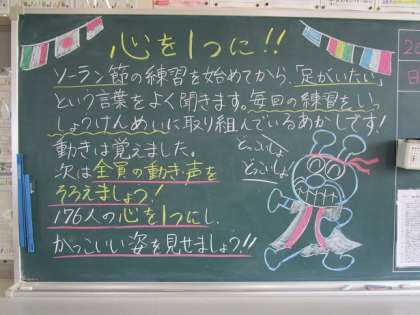 心を1つに!!
ソーラン節の練習を始めてから、「足がいたい」
という言葉をよく聞きます。毎回の練習をいっ
しょうけんめいに取り組んでいるあかしです!
動きは覚えました。
次は全員の動き・声を
そろえましょう!
176人の心を1つにし、
かっこいい姿を見せましょう!!
どっこいしょ
どっこいしょ
日